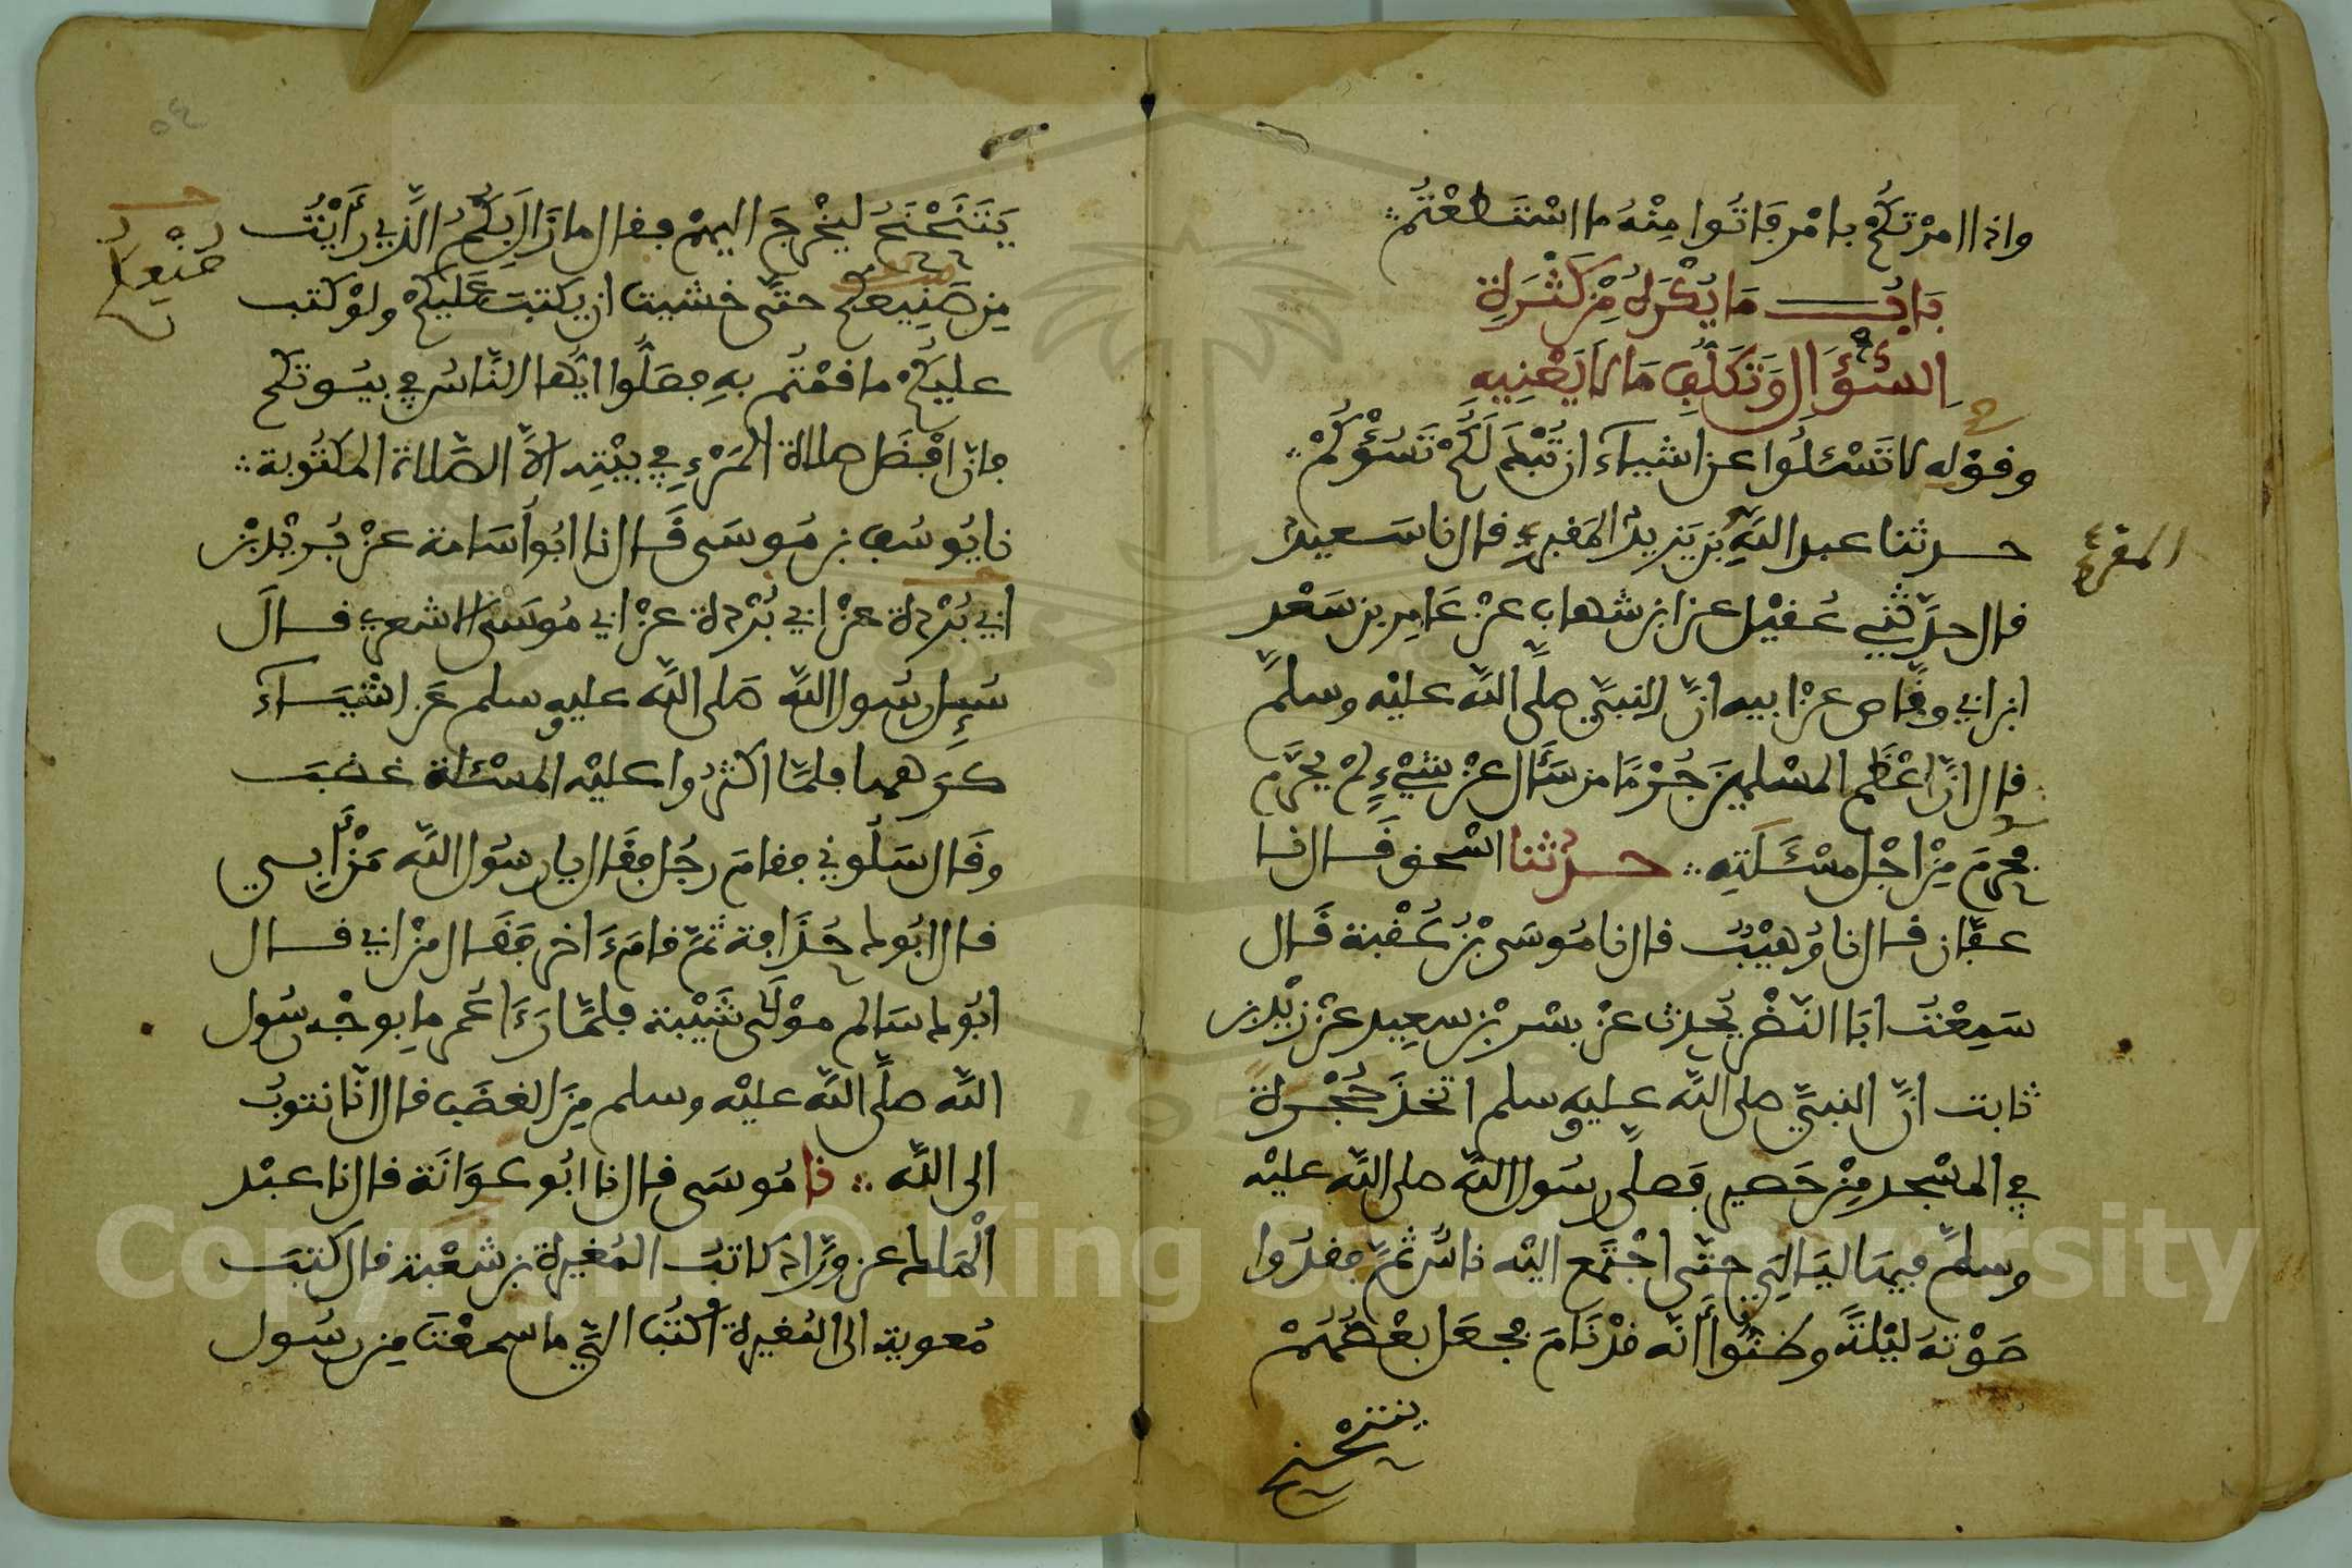 واذا امرْتكُمْ بامْر فَاتُوا مِنْهُ ما اسْتَطعْتُم
بَابُ مَا يُكْرَهُ مِنْ كَثْرَةِ
السُّؤَالِ وَتَكَلُّفِ مَا لَا يَعْنِيهِ
وقوْله لا تَسْئلُوا عن اشياءَ ان تُبْدَ لَكُمْ تَسُؤْكُمْ
حدثنا عبد اللّهِ بْن يَزيدَ المقرئ قال نا سَعيد
المقرئ
قال حدّثني عُقيْل عن ابن شهاب عنْ عَامِر بن سَعْد
ابن ابي وقّاص عنْ ابيه انّ النبيّ صلّى اللّه عليْه وسلمّ
قال انّ اعْظَم المسْلمينَ جُرْمًا من سَأَل عنْ شيْءٍ لمْ يحرّم
فحرّمَ مِنْ اجْل مسْـَٔلَتِه حدثنا اسْحق قَال نا
عفّان قال نا وُهيْبٌ قال نا مُوسَى بْنُ عُقْبة قَال
سَمِعْتُ ابَا النّضْر يُحدث عنْ بسْر بْن سعِيد عنْ زيْد بن
ثابت انّ النبيّ صلى اللّه عليه وسلم اتخذَ حُجْرة
في المسْجد مِنْ حَصير فَصلّى رسُول اللّه صلى اللّه عليْه
وسلمّ فيهَا ليَاليَ حتّى اجْتمَع اليْه ناسٌ ثمّ فقدُوا
صَوْتهُ ليْلةً وظنُّوا أنّه قدْ نَامَ فجعَل بعْضُهُمْ
يتنحْنح
يَتَنَحْنَحُ ليخْرجَ اليهمْ فقال ما زَالَ بِكُمُ الّذِي رأَيْتُ
مِن صَنِيعكُم حتّى خشيت ان يكتبَ عَليكُمْ ولوْ كتب
صُنْعِكُمْ
عليكُمْ ما قمْتُم بهِ فصَلُّوا ايُّها النّاسُ في بيُوتكم
فانّ افْضَل صلاة المَرْءِ في بيْتِه الاّ الصّلاة المكتُوبة
نا يُوسُف بن مُوسَى قَال نا ابُو أُسَامة عنْ بُريْد بْن
ابي بُرْدة عنْ ابي بُرْدة عنْ ابي مُوسَى الاشعري قال
سُئِل رسُول اللّه صَلى اللّه عليه وسلم عَن اشْيَاءَ
كرهها فلمّا اكثرُوا عليْه المسْئلة غضبَ
وقَال سَلُوني فقامَ رجُل فقَال يا رسُول اللّه مَنْ أَبِي
قال ابُوك حُذَافة ثمّ قام ءَاخر فقَال منْ ابي قال
ابُوك سَالم موْلَى شَيْبة فلمّا رَءَا عُمر ما بوجْه رسُول
اللّه صلّى اللّه عليْه وسلم مِنَ الغضَب قال انّا نتوبُ
الى اللّه نا مُوسَى قال نا ابُو عوَانَة قال نا عبْد
الْمَلك عن ورّاد كاتبُ المُغيرة بن شُعْبة قال كتبَ
مُعوية الى المُغيرة اُكتُبْ اليّ ما سمعْتَ مِن رسُول